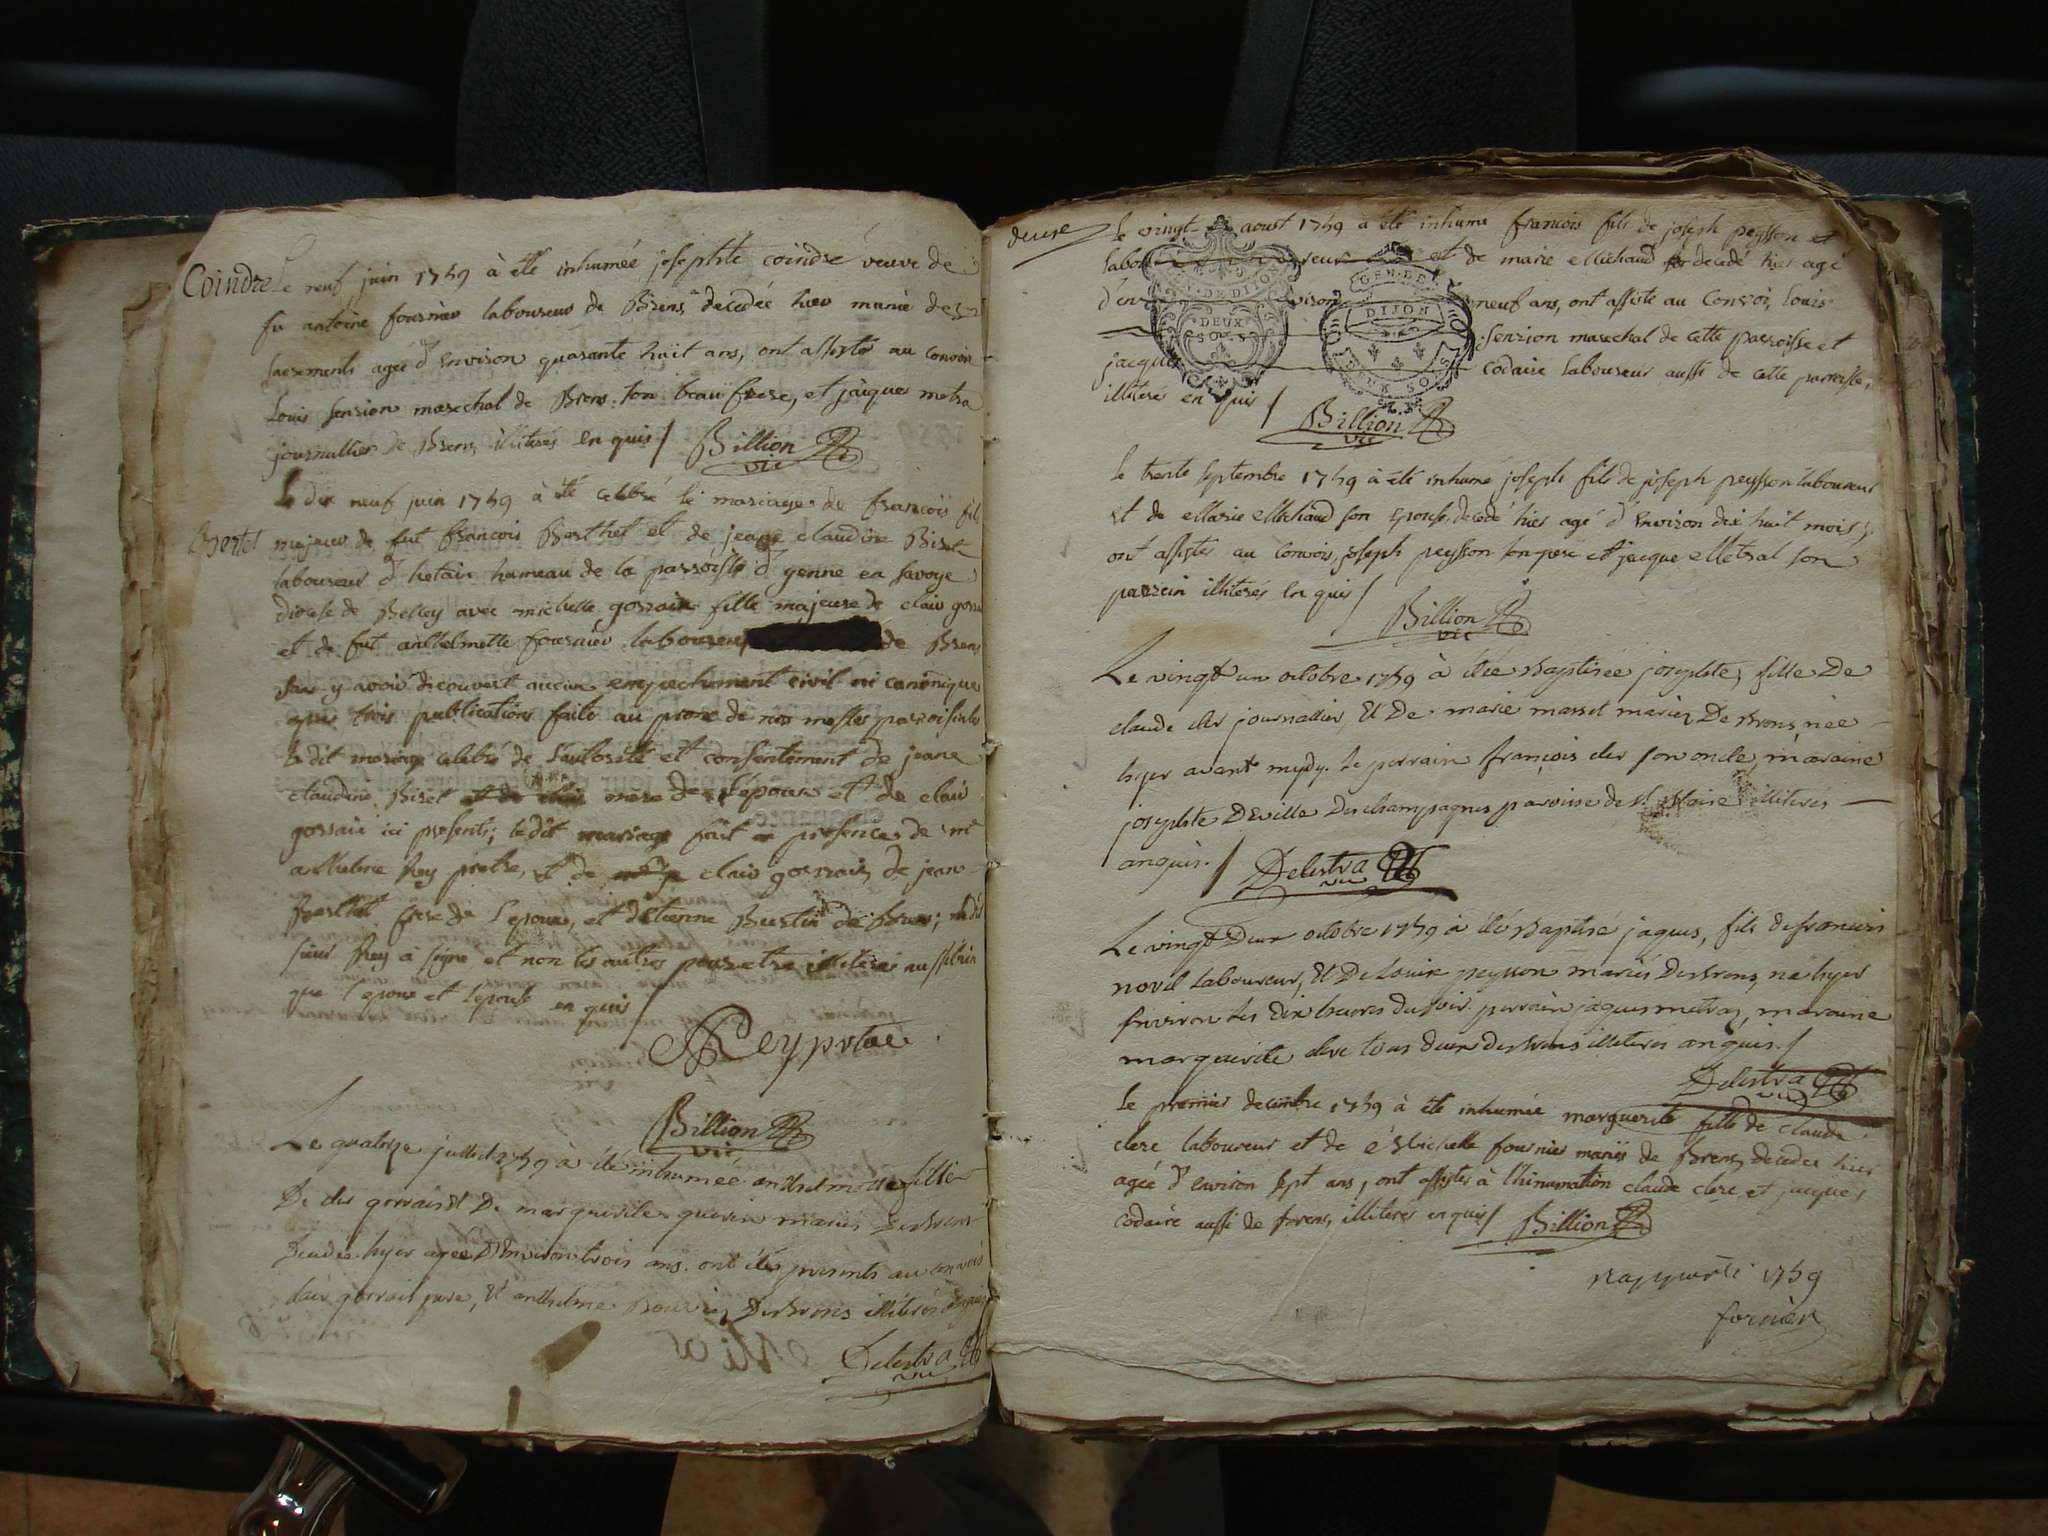 Coindre
Le neuf juin 1759 à été inhumée josephte coindre veuve de
fu antoine fournier laboureur de Brens decedée hier munie des
sacrements agée d'environ quarante huit ans, ont assisté au convoi
Louis sension marechal de Brens son beau frere, et jacques metra
journallier de Brens, illiterés enquis / Billion
vic
Bertet
Le dix neuf juin 1759 à été celebré le mariage de françois fil
majeur de fut françois Berthet et de jeane claudine Biset
laboureur d'hetain hameau de la parroisse d'yenne en savoye
diocese de Belley avec michelle gorrain fille majeure de clair gorra
et de fut anthelmette fournier laboureur de Brens
sans y avoir decouvert aucun empechement civil ni canonique
apres trois publications faite au prone de nos messes parroissiales
le dit mariage celebré de l'autorité et consentement de jeane
claudine Biset mere de l'epoux et de clair
gorrain ici presents; le dit mariage fait en presences de mr
anthelme Rey pretre, et de clair gorrain, de jean
Berthet frere de l'epoux, et d'etienne Bustin de Brens; le dit
sieur Rey à signé et non les autres pour etre illiteres aussi bien
que l'epoux et l'epouse enquis /
Rey pretre
Billion
vic
Le quatorze juillet 1759 à été inhumée anthelmette fille
De cler gorrain et De marguerite guerin mariés de Brens
decedée hyer agée D'environ trois ans. ont étés presents au convoi
clair gorrain pere, et anthelme Bouvier De Brens illiterés enquis
Delestra
vic
deuxe
Le vingt aoust 1759 à été inhumé francois fils de joseph peysson et
labou reur et de marie Michaud decedé hier agé
d'en viron neuf ans, ont assisté au convoi, Louis
sension marechal de cette parroisse et
jacque codaire laboureur aussi de cette parroisse,
illiteré enquis / Billion
vic
GEN. DE DIJON
DEUX
SOLS
GEN. DE
DIJON
DEUX SOLS
Le trente septembre 1759 à été inhumé joseph fils de joseph peysson laboureur
et de Marie Michaud son epouse, decedé hier agé d'environ dix huit mois,
ont assistés au convois joseph peysson son pere et jacque Metral son
parrein illiterés enquis /
Billion
vic
Le vingt un octobre 1759 à étée Baptisée josephte, fille De
claude cler journallier, et De marie masset mariez De Brens, née
hyer avant mydy. le perrain françois cler son oncle, maraine
josephte Deville Des champagnes paroisse de St. illiterés
anquis. / Delestra
vic
Le vingt Deux octobre 1759 à été Baptisé jaques, fils de francois
novel laboureur, et De Louise peysson mariés De Brens, né hyer
Environ les dix heures du soir. perrain jaques metraz, maraine
marguerite clere tous deux De Brens illiterés anquis. /
Delestra
vic
Le premier decembre 1759 à été inhumée marguerite fille de claude
clere laboureur et de Michelle fournier mariés de Brens, decedée hier
agée d'environ sept ans, ont assistés à l'hinumation claude clere et jacques
codaire aussi de Brens, illiteres enquis / Billion
rapporté 1759
fornier